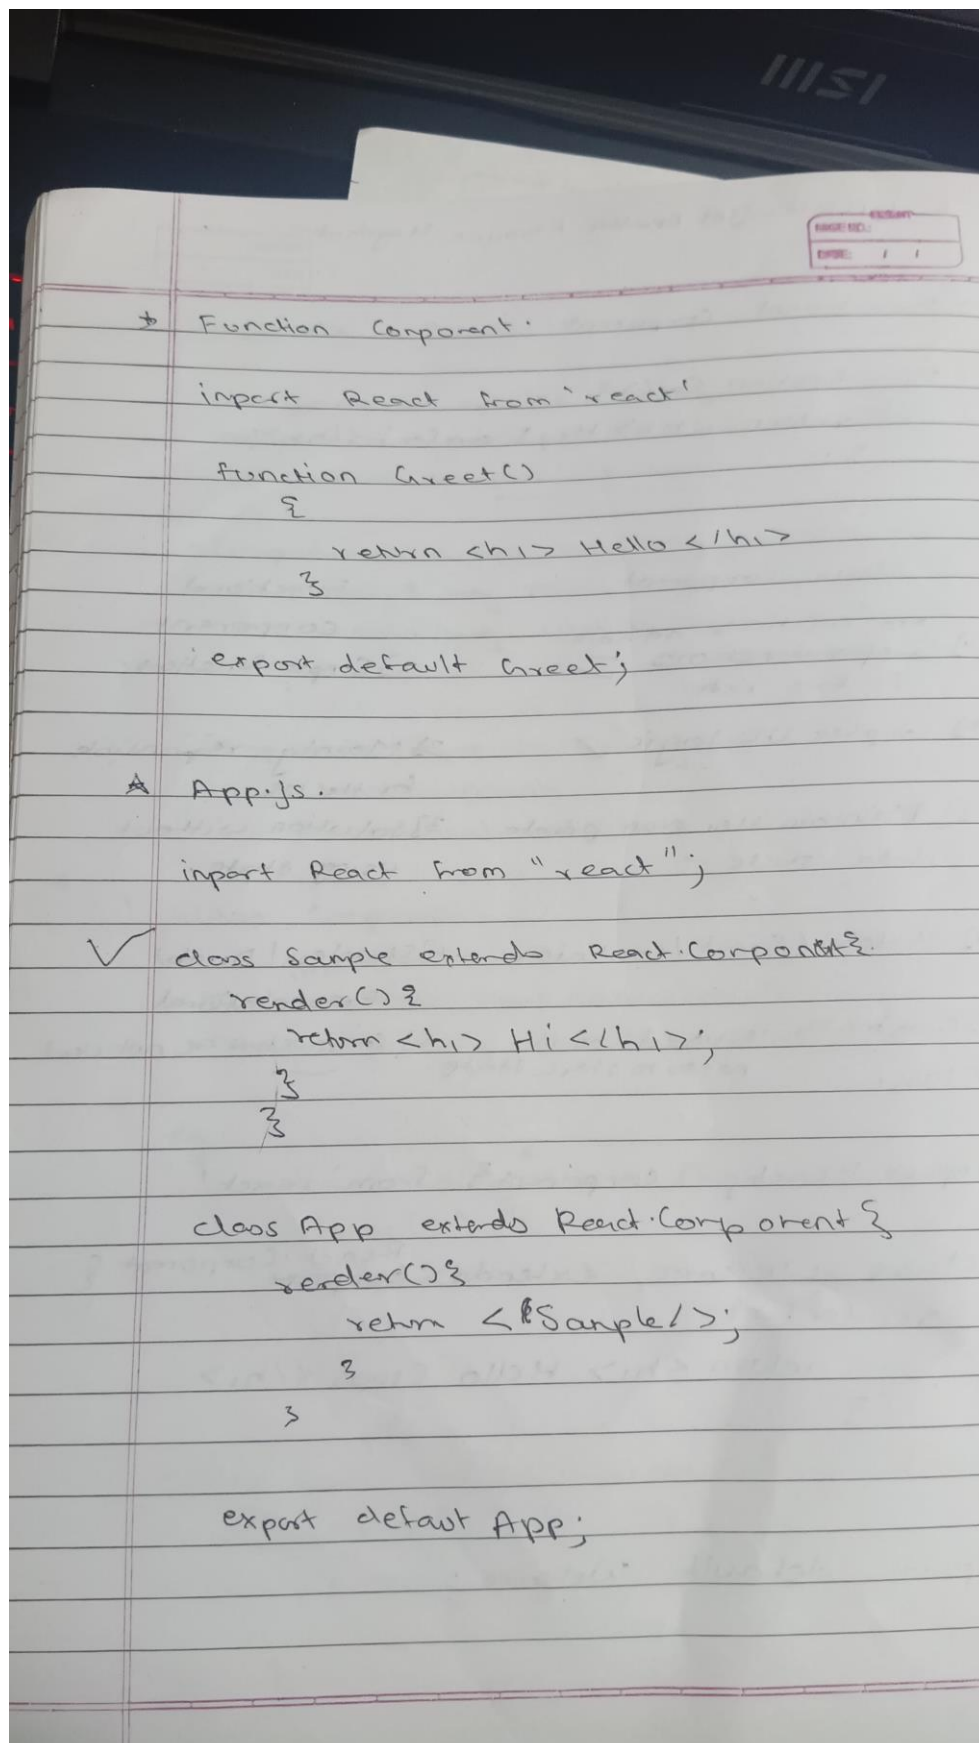 msi
PAGE NO.:
DATE: / /
* Function Component.
import React from 'react'
function Greet()
{
return <h1> Hello </h1>
}
export default Greet;
* App.js.
import React from "react";
✓ class Sample extends React.Component{
render(){
return <h1> Hi </h1>;
}
}
class App extends React.Component {
render(){
return <Sample/>;
}
}
export defaut App;